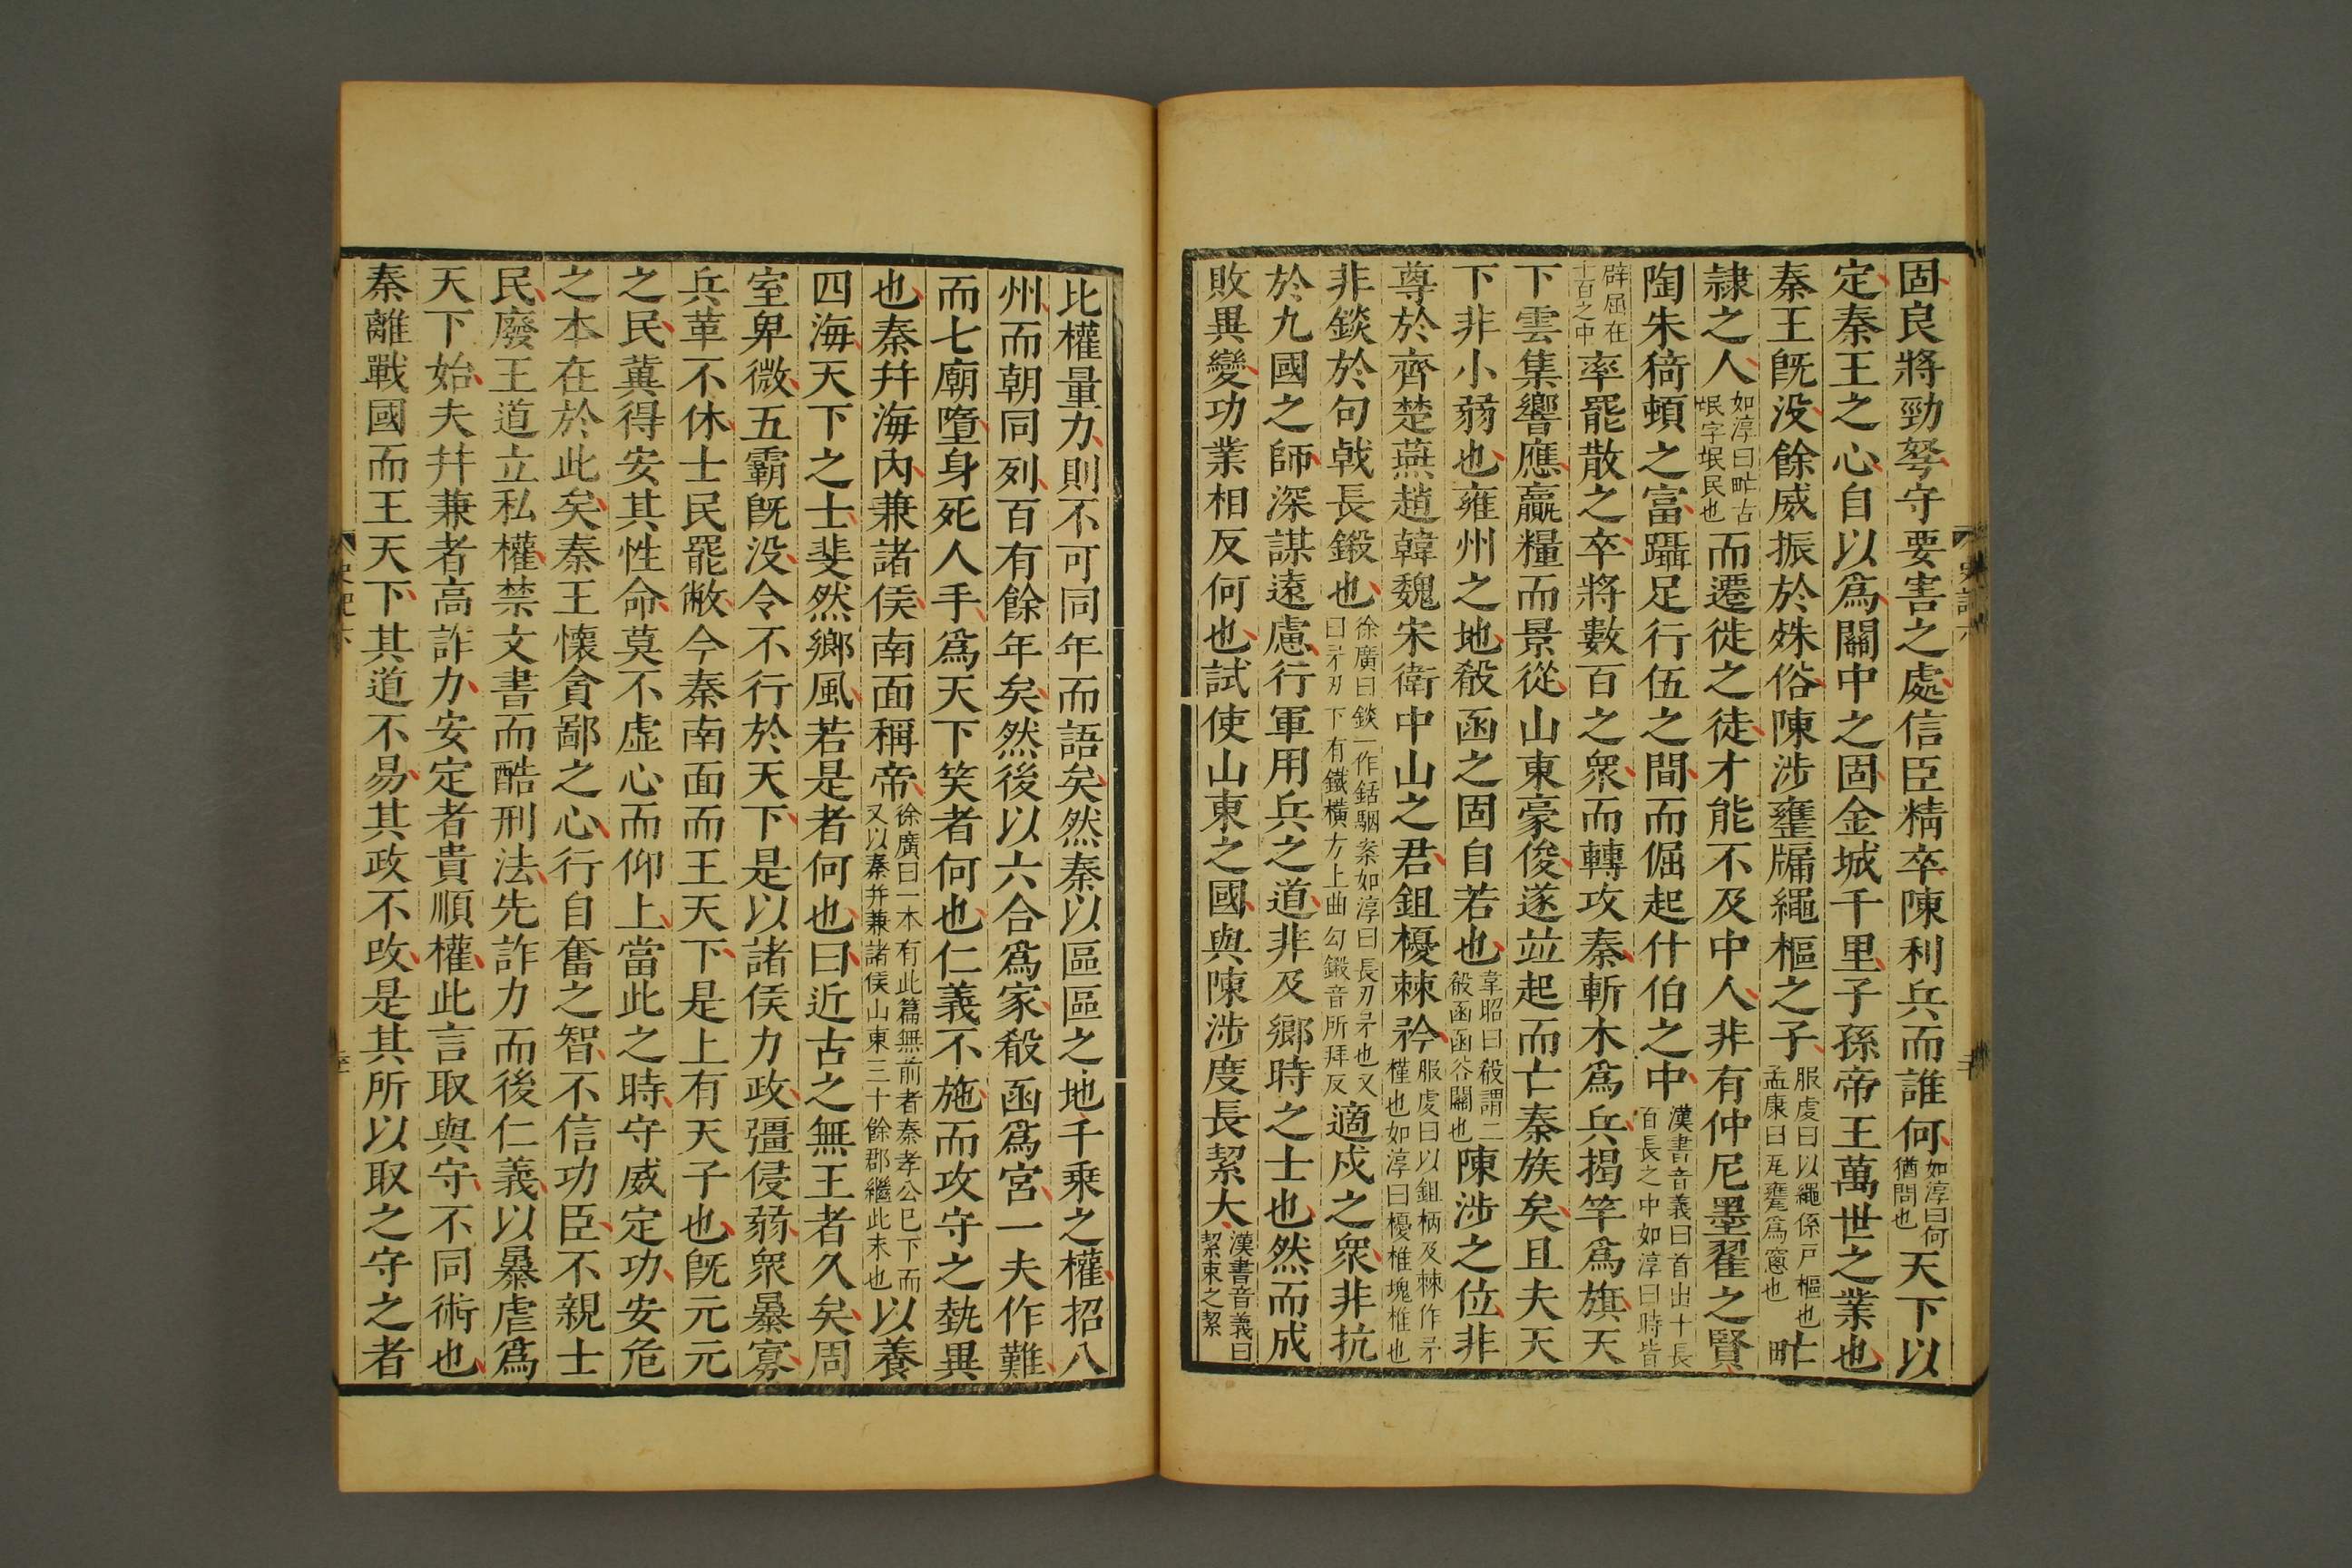 固良將勁弩守要害之處信臣精卒陳利兵而誰何如淳曰何猶問也天下以
定秦王之心自以爲關中之固金城千里子孫帝王萬世之業也
秦王旣没餘威振於殊俗陳涉甕牖繩樞之子服虔曰以繩係戸樞也孟康曰瓦甕爲窻也甿
隷之人如淳曰甿古氓字氓民也而遷徙之徒才能不及中人非有仲尼墨翟之賢
陶朱猗頓之富躡足行伍之間而倔起什伯之中漢書音義曰首出十長百長之中如淳曰時皆
辟屈在十百之中率罷散之卒將數百之衆而轉攻秦斬木爲兵揭竿爲旗天
下雲集響應贏糧而景從山東豪俊遂並起而亡秦族矣且夫天
下非小弱也雍州之地殽函之固自若也韋昭曰殽謂二殽函函谷關也陳涉之位非
尊於齊楚燕趙韓魏宋衛中山之君鉏櫌棘矜服虔曰以鉏柄及棘作矛槿也如淳曰櫌椎塊椎也
非錟於句戟長鎩也徐廣曰錟一作銛駰案如淳曰長刃矛也又曰矛刃下有鐵橫方上曲勾鎩音所拜反適戍之衆非抗
於九國之師深謀遠慮行軍用兵之道非及鄉時之士也然而成
敗異變功業相反何也試使山東之國與陳涉度長絜大漢書音義曰絜束之絜
比權量力則不可同年而語矣然秦以區區之地千乘之權招八
州而朝同列百有餘年矣然後以六合爲家殽函爲宮一夫作難
而七廟墮身死人手爲天下笑者何也仁義不施而攻守之埶異
也秦幷海內兼諸侯南面稱帝徐廣曰一本有此篇無前者秦孝公已下而又以秦幷兼諸侯山東三十餘郡繼此末也以養
四海天下之士斐然鄉風若是者何也曰近古之無王者久矣周
室卑微五霸旣没令不行於天下是以諸侯力政彊侵弱衆暴寡
兵革不休士民罷敝今秦南面而王天下是上有天子也旣元元
之民冀得安其性命莫不虛心而仰上當此之時守威定功安危
之本在於此矣秦王懷貪鄙之心行自奮之智不信功臣不親士
民廢王道立私權禁文書而酷刑法先詐力而後仁義以暴虐爲
天下始夫幷兼者高詐力安定者貴順權此言取與守不同術也
秦離戰國而王天下其道不易其政不改是其所以取之守之者